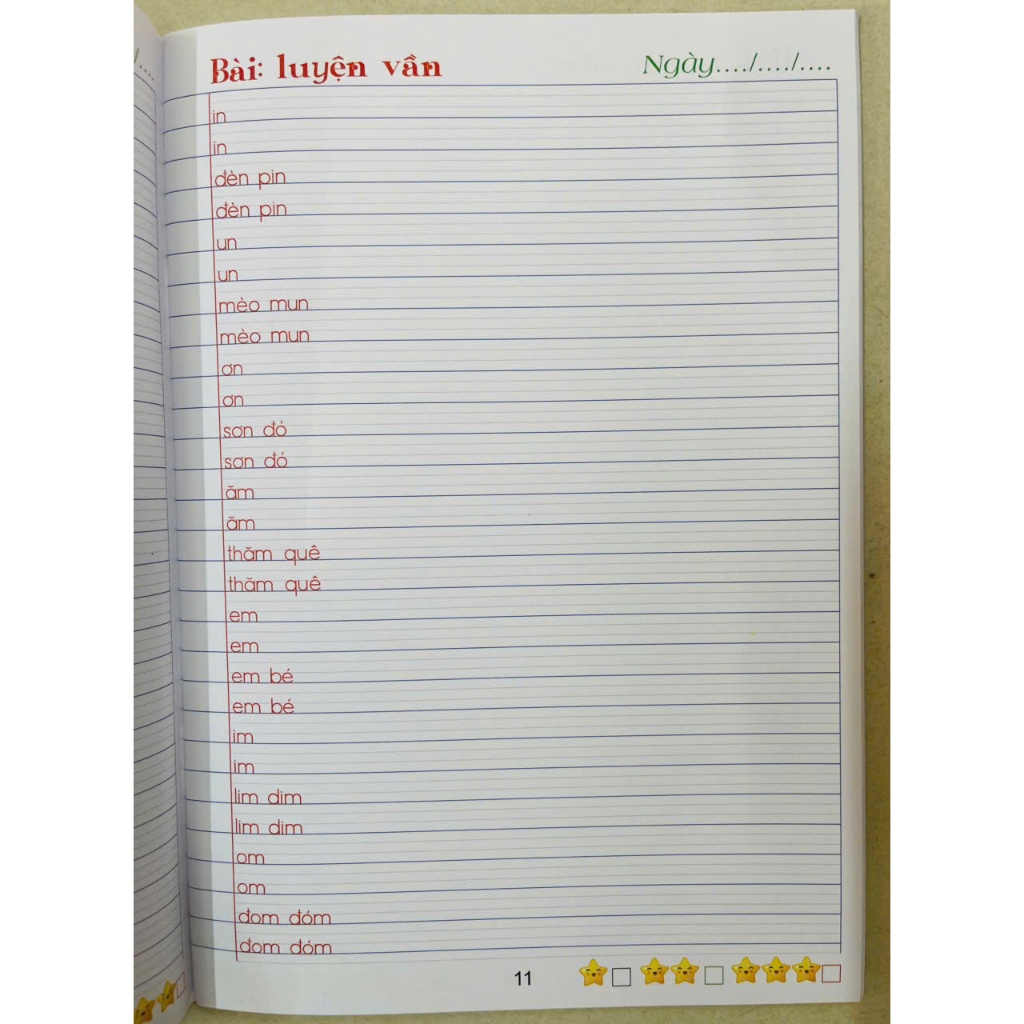 Bài: luyện vần Ngày..../..../....
in
in
đèn pin
đèn pin
un
un
mèo mun
mèo mun
ơn
ơn
sơn đỏ
sơn đỏ
ăm
ăm
thăm quê
thăm quê
em
em
em bé
em bé
im
im
lim dim
lim dim
om
om
đom đóm
đom đóm
11